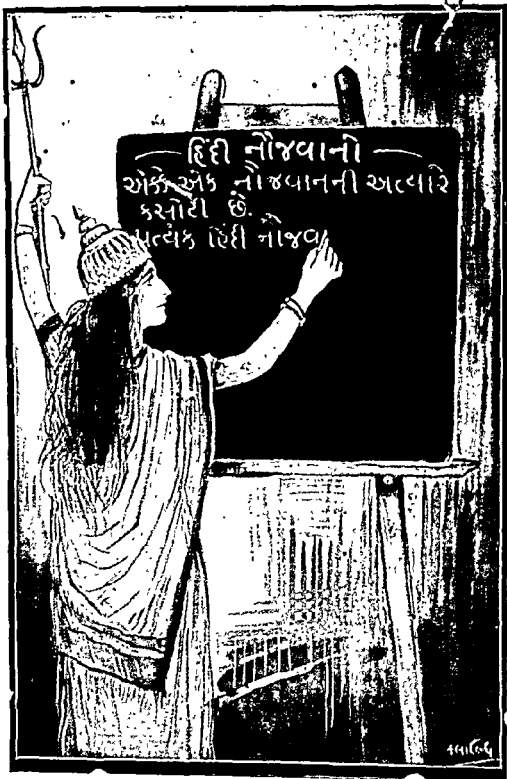 હિંદી નૌજવાનો
એકે એક નૌજવાનની અત્યારે
કસોટી છે.
પ્રત્યેક હિંદી નૌજવ